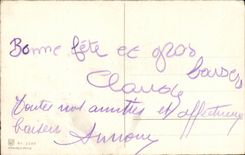 Bonne fête et gros
baisers
Claude
Toutes nos amitiés et affectueux
baisers